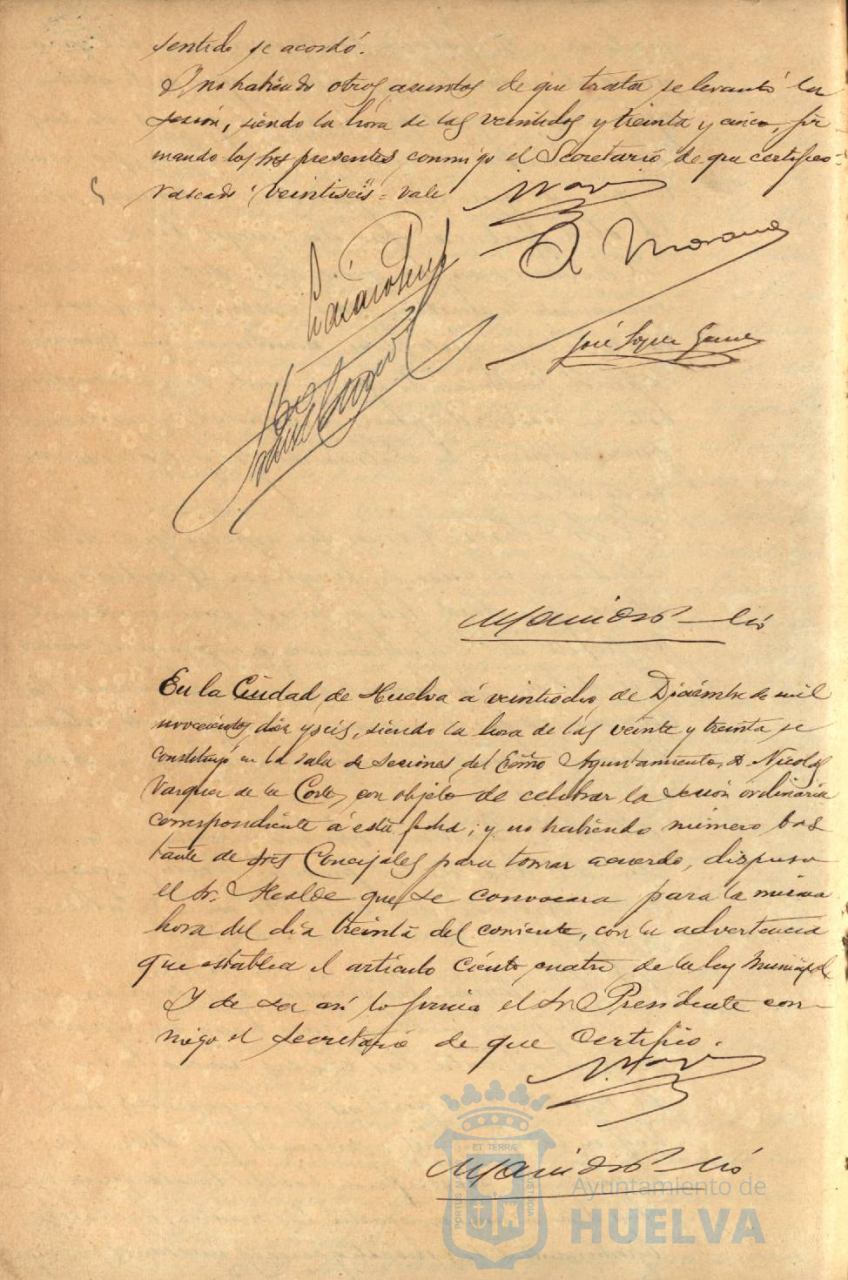 sentido se acordó.
Y no habiendo otros asuntos de que tratar se levantó la
sesión, siendo la hora de las veintidos y treinta y cinco, fir
mando los Sres presentes, conmigo el Secretario de que certifico =
rascado "veintiseis" = vale
A. Morano
José Lopez Gomez
En la Ciudad de Huelva á veintiocho de Diciembre de mil
novecientos diez y seis, siendo la hora de las veinte y treinta se
constituyó en la sala de sesiones del Excmo Ayuntamiento, D. Nicolas
Vazquez de la Corte, con objeto de celebrar la sesión ordinaria
correspondiente á esta fecha; y no habiendo número bas
tante de Sres Concejales para tomar acuerdo, dispuso
el Sr. Alcalde que se convocara para la misma
hora del dia treinta del corriente, con la advertencia
que establece el artículo ciento cuatro de la ley Municipal
Y de ser asi lo firma el Sr. Presidente con-
migo el Secretario de que certifico.
ET TERRÆ
Ayuntamiento de
HUELVA